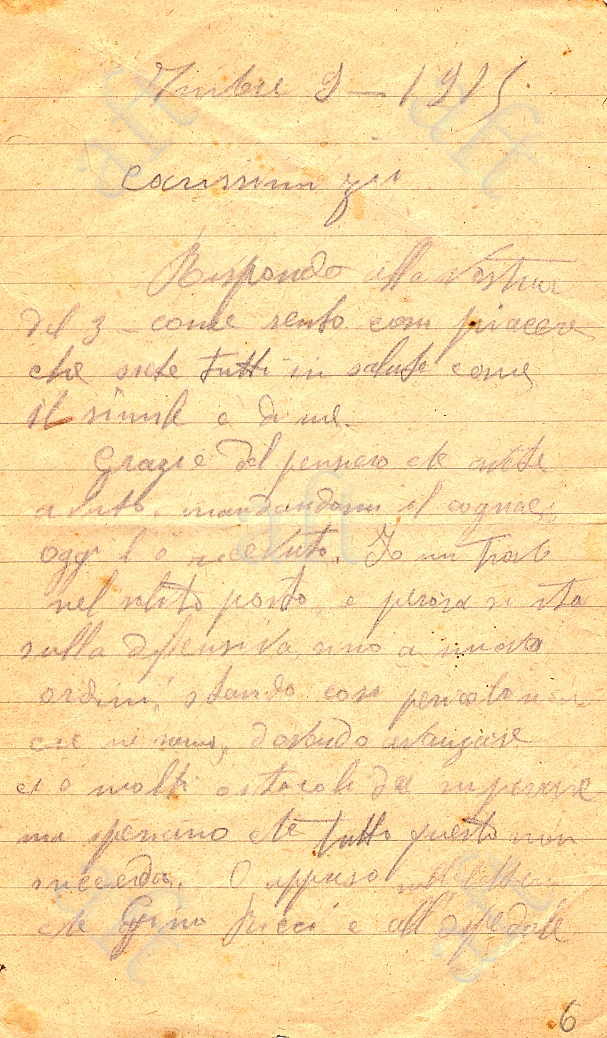 9mbre 9 - 1915
Carissimi zii
Rispondo alla vostra
del 3 - come sento com piacere
che siete tutti in salute come
il simile e di me.
Grazie del pensiero che avete
avuto, mandandomi il cognac,
oggi l o ricevuto. Io mi trovo
nel solito posto, e perora si sta
sulla difensiva, sino a nuovo
ordini, stando cosi pericolo non
ce ne sono, dovendo avanzare
ci è molti ostacoli da superare
ma speriamo che tutto questo non
succeda. O appreso
che Gino Ricci e all'ospedale
6